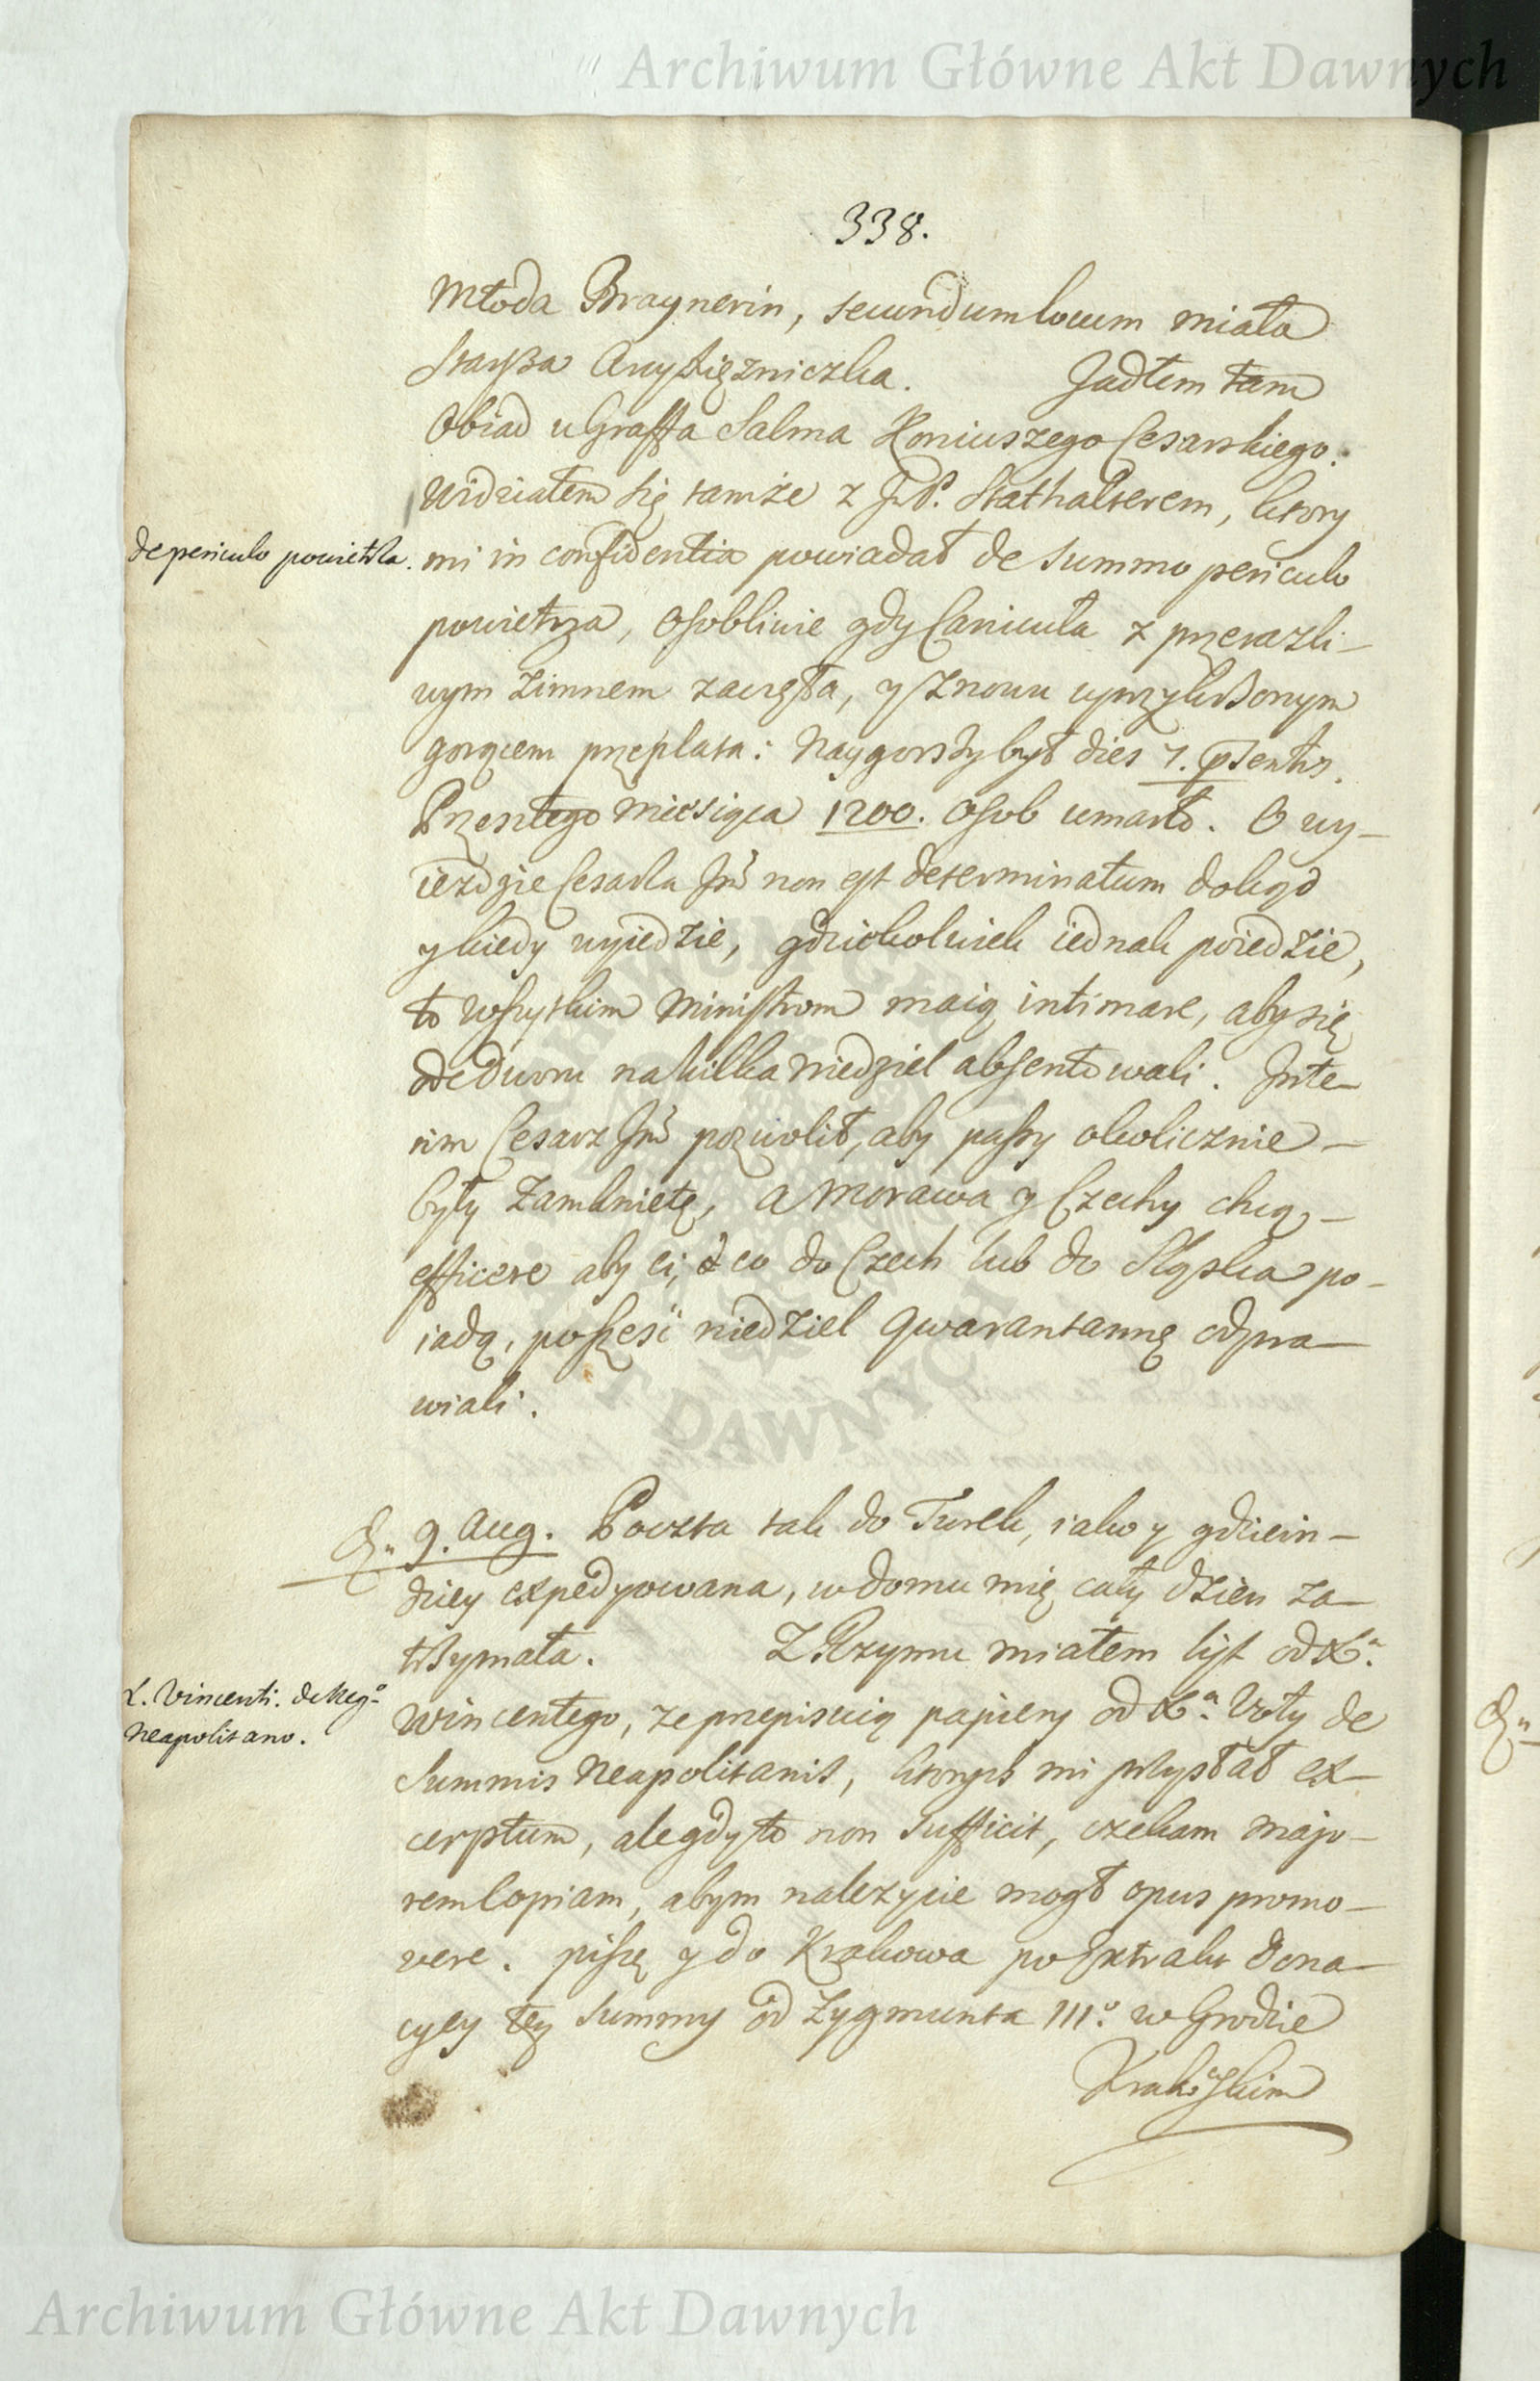 Archiwum Główne Akt Dawnych
338.
Młoda Braynerin, secundum locum miała
Starsza Arcyxiężniczka. Jadłem tam
Obiad u Graffa Salma Koniuszego Cesarskiego.
Widziałem się tamże z JmP. Stathalterem, ktory
de periculo powietrza.
mi in confidentia powiadał de summo periculo
powietrza, osobliwie gdy Canicuła z przeraźli-
wym zimnem zaczęła, y znowu uprzykrzonym
gorącem przeplata: Naygorszy był dies 7. psentis.
Przeszłego Miesiąca 1200. osob umarło. O wy-
iezdzie Cesarza Jmć non est determinatum dokąd
y kiedy wyiedzie, gdziekolwiek iednak poiedzie,
to wszytkim Ministrom maią intimare, aby się
ode Dworu na kilka niedziel absentowali. Inte-
rim Cesarz Jmć pozwolił, aby passy okolicznie -
były zamknietę, a Morawa y Czechy chcą -
efficere aby ci, co do Czech lub do Sląska po-
iadą, po szesć niedziel Qwarantannę odpra-
wiali.
Dn 9. Aug. Poczta tak do Turek, iako y gdziein-
dziey expedyowana, w domu mię cały dzien za-
trzymała. Z Rzymu miałem list od X.
X. Vincenti. de Neg.o
Neapolitano.
Wincentego, ze przepisuią papiery od X. Voty de
Summis Neapolitanis, ktorych mi przysłał ex-
cerptum, ale gdy to non sufficit, czekam majo-
rem Copiam, abym nalezycie mogł opus promo-
vere. piszę y do Krakowa po Extrakt dona-
cyey tey Summy od Zygmunta III.o w Grodzie
Krakoskim
DAWNYCH
Archiwum Główne Akt Dawnych